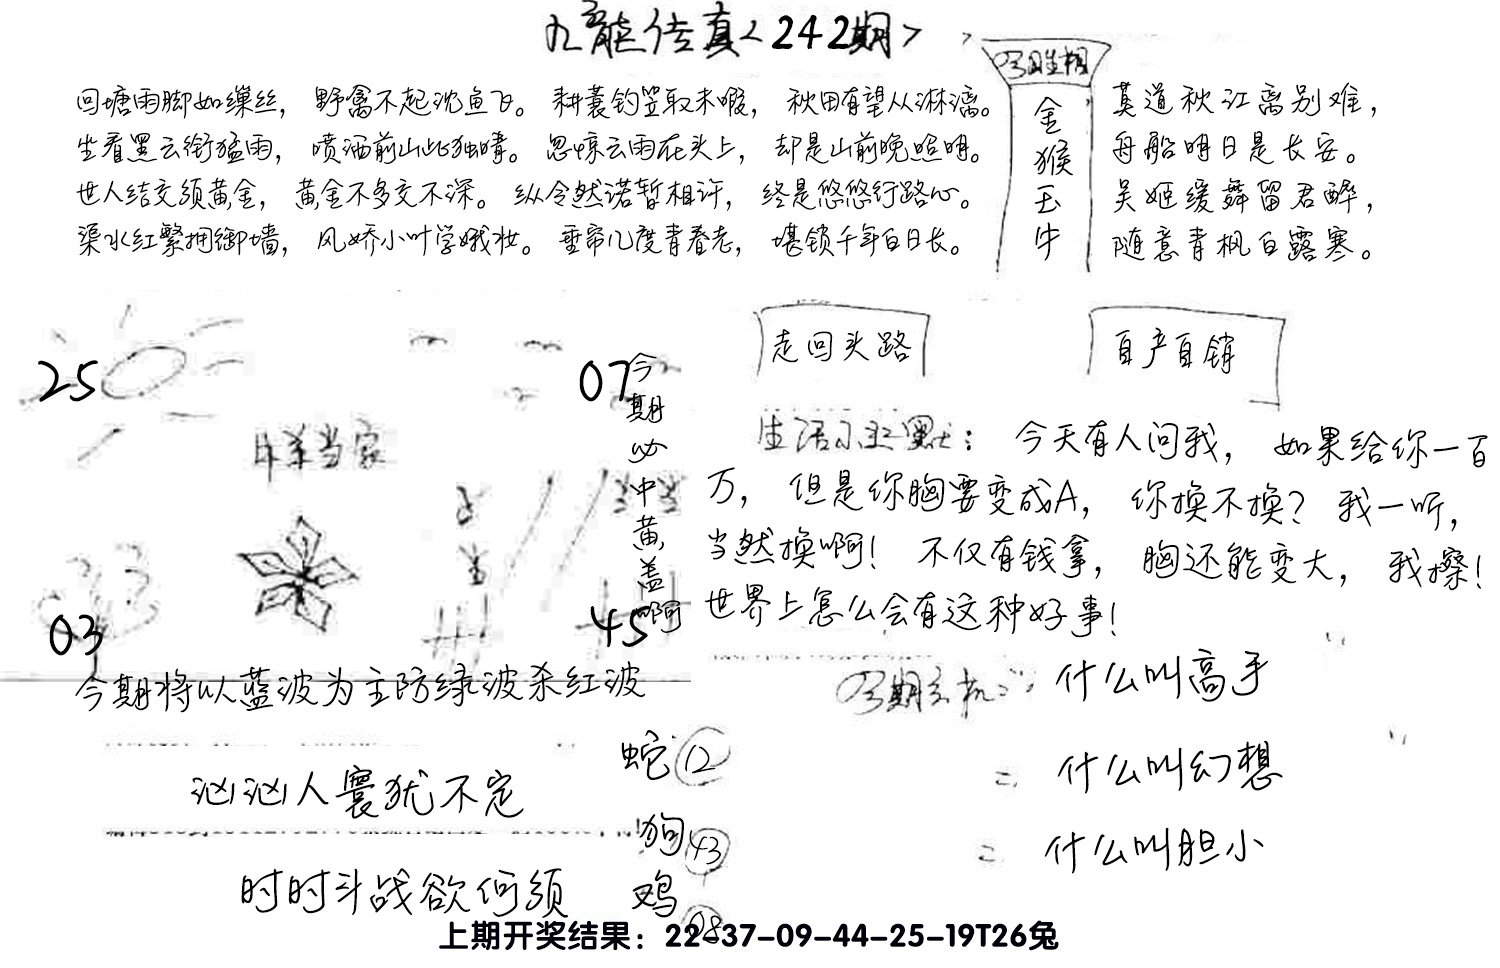 九龙传真<242期>
回塘雨脚如缫丝，野禽不起沈鱼飞。耕蓑钓笠取未暇，秋田有望从淋漓。
坐看黑云衔猛雨，喷洒前山此独晴。忽惊云雨在头上，却是山前晚照明。
世人结交须黄金，黄金不多交不深。纵令然诺暂相许，终是悠悠行路心。
渠水红繁拥御墙，风娇小叶学娥妆。垂帘几度青春老，堪锁千年白日长。
金猴玉牛
莫道秋江离别难，
舟船明日是长安。
吴姬缓舞留君醉，
随意青枫白露寒。
25
07
今期必中黄盖啊
03
45
今期将以蓝波为主防绿波杀红波
走回头路
自产自销
生活小幽默：今天有人问我，如果给你一百
万，但是你胸要变成A，你换不换？我一听，
当然换啊！不仅有钱拿，胸还能变大，我擦！
世界上怎么会有这种好事！
什么叫高手
什么叫幻想
什么叫胆小
汹汹人寰犹不定
时时斗战欲何须
蛇 12
狗 43
鸡 08
上期开奖结果：22-37-09-44-25-19T26兔